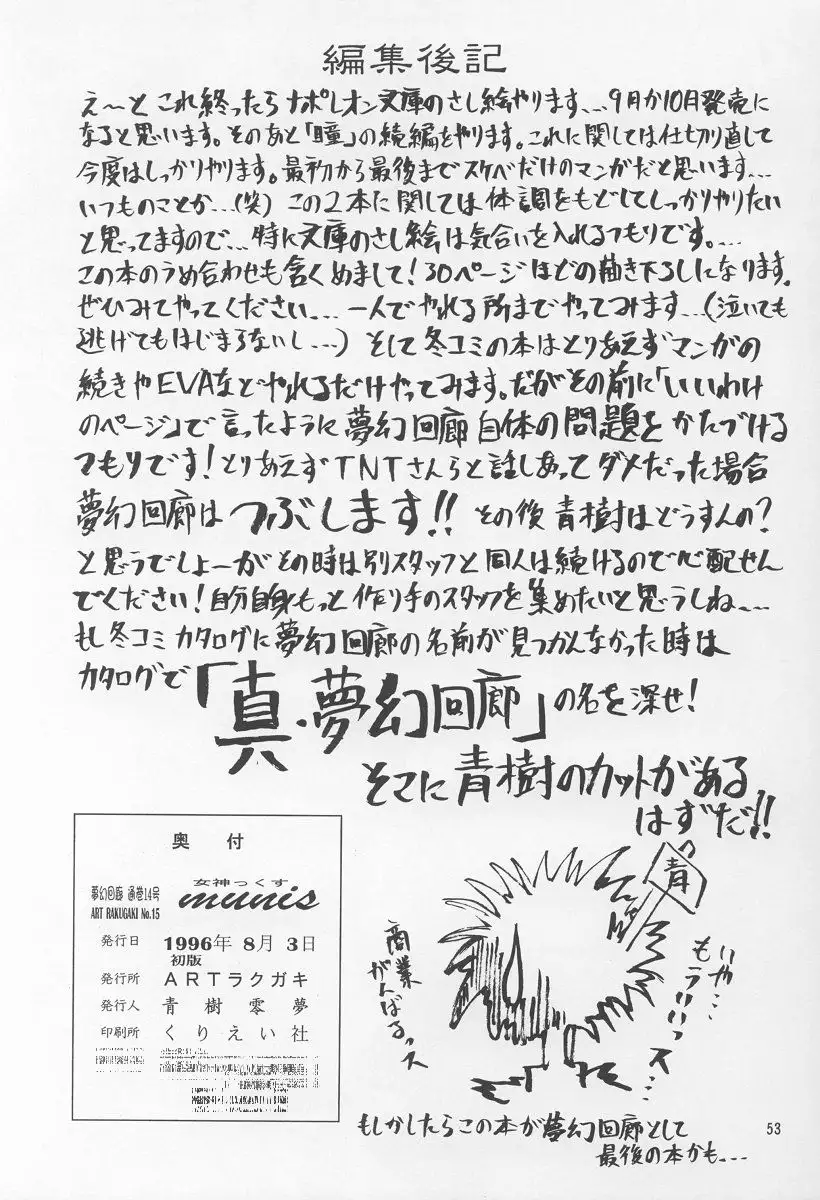 編集後記
え〜と これ終ったら ナポレオン文庫のさし絵やります...9月か10月発売に
なると思います。そのあと「瞳」の続編をやります。これに関しては仕切り直して
今度はしっかりやります。最初から最後までスケベだけのマンガだと思います...
いつものことか...(笑) この2本に関しては体調をもどしてしっかりやりたい
と思ってますので... 特に文庫のさし絵は気合いを入れるつもりです。...
この本のうめ合わせも含くめまして!30ページほどの描き下ろしになります。
ぜひみてやってください... 一人でやれる所までやってみます...(泣いても
逃げてもはじまらないし...) そして冬コミの本はとりあえずマンガの
続きやEVAなどやれるだけやってみます。だがその前に「いいわけ
のページ」で言ったように夢幻回廊自体の問題をかたづける
つもりです!とりあえずTNTさんらと話しあってダメだった場合
夢幻回廊は つぶします!! その後青樹はどうすんの?
と思うでしょーが その時は別スタッフと同人は続けるので心配せん
でください!自分自身もっと作り手のスタッフを集めたいと思うしね...
もし冬コミカタログに夢幻回廊の名前が見つかんなかった時は
カタログで「真・夢幻回廊」の名を深せ!
そこに青樹のカットがある
はずだ!!
奥付
夢幻回廊 通巻14号
ART RAKUGAKI No.15
女神っくす
munis
発行日 1996年 8月 3日
初版
発行所 ARTラクガキ
発行人 青樹零夢
印刷所 くりえい社
青
商業
がんばるっス
いや...
もういいっス...
もしかしたらこの本が夢幻回廊として
最後の本かも...
53